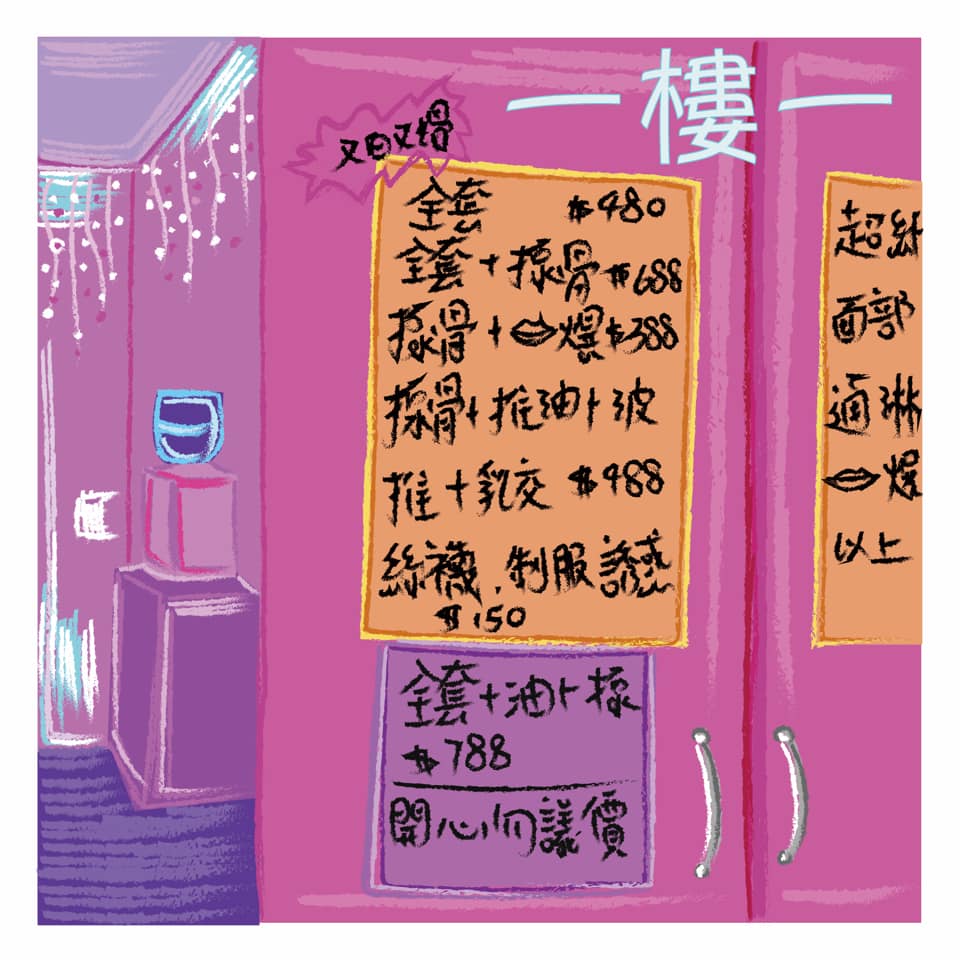 一樓一
全套 $480
全套+揼骨 $688
揼骨+爆 $388
揼骨+推油+波
推+乳交 $488
絲襪.制服誘惑
$150
全套+油+揼
$788
開心價
超
面部
淋
爆
以上